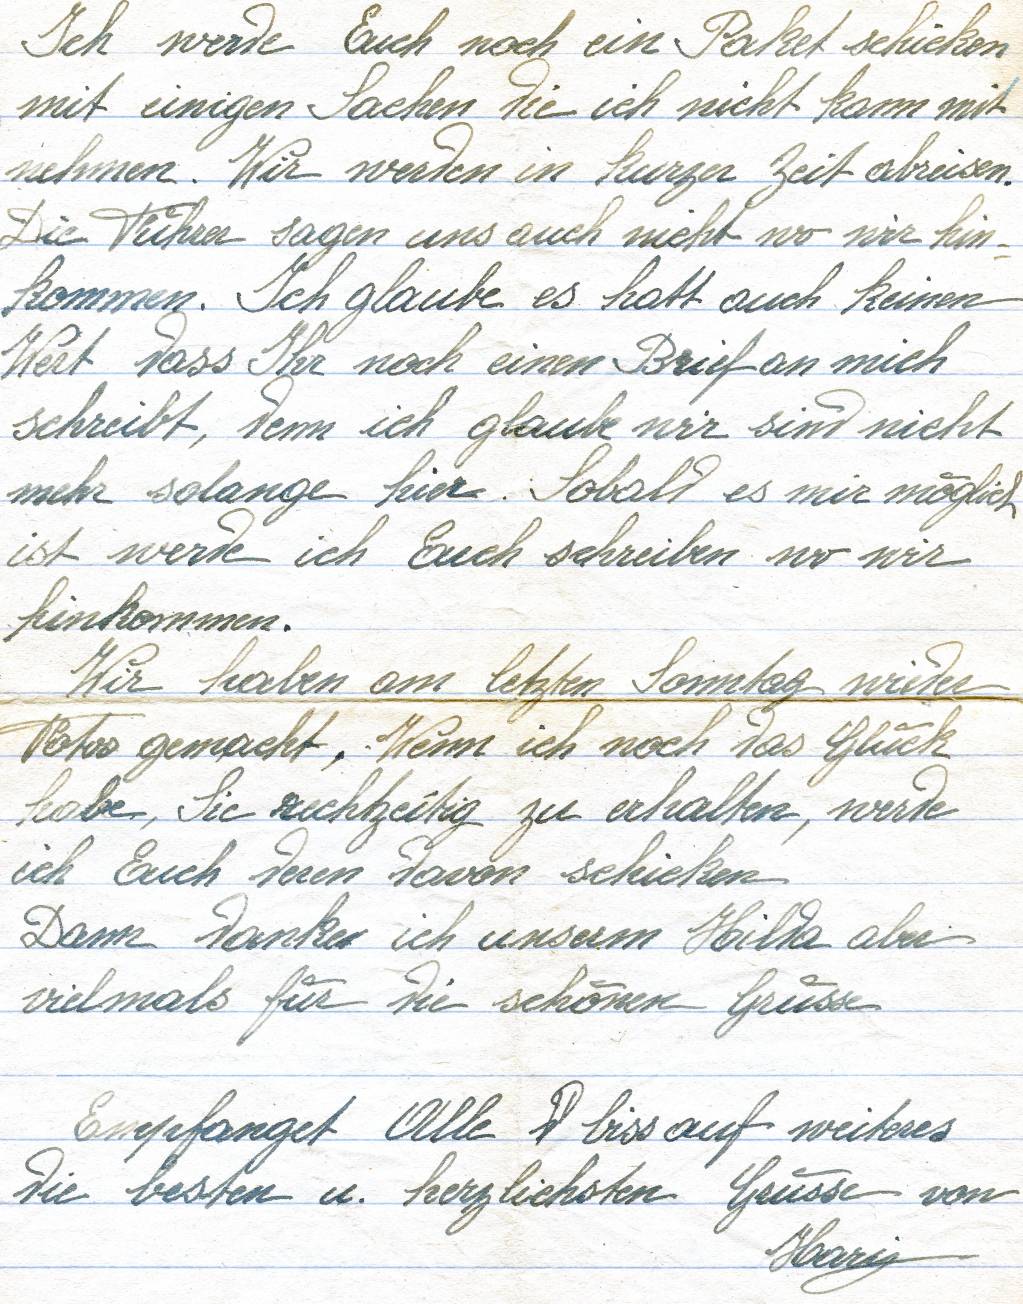 Ich werde Euch noch ein Paket schicken
mit einigen Sachen die ich nicht kann mit
nehmen. Wir werden in kurzer Zeit abreisen.
Die Führer sagen uns auch nicht wo wir hin-
kommen. Ich glaube es hatt auch keinen
Wert dass Ihr noch einen Brief an mich
schreibt, denn ich glaube wir sind nicht
mehr solange hier. Sobald es mir möglich
ist werde ich Euch schreiben wo wir
hinkommen.
Wir haben am letzten Sonntag wieder
Fotos gemacht, Wenn ich noch das Glück
habe, Sie rechtzeitig zu erhalten, werde
ich Euch deren davon schicken
Dann danke ich unserm Hilda aber
vielmals für die schönen Grüsse
Empfanget Alle biss auf weiteres
die besten u. herzlichsten Grüsse von
Hary